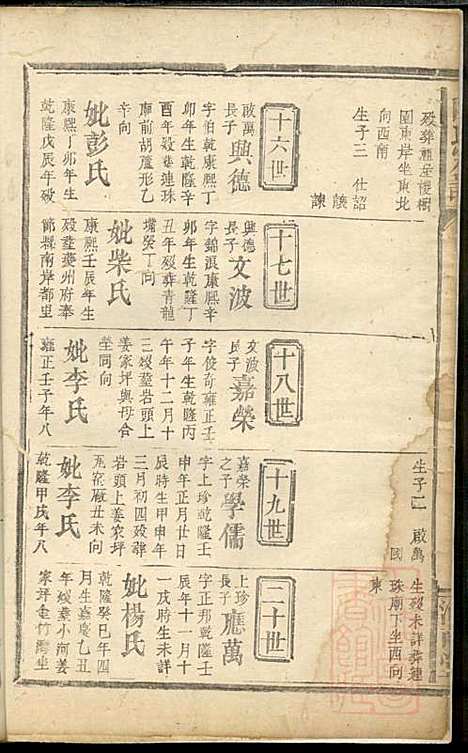 歿葬祖塋慢樹
園東岸坐東北
向西南
生子三 仕詔
謨
諫
十六世
啟萬
長子
興德
字伯乾康熙丁
卯年生乾隆辛
酉年歿葬連珠
庫前胡蘆形乙
辛向
妣彭氏
康熙丁卯年生
乾隆戊辰年歿
十七世
興德
長子
文波
字錦浪康熙辛
卯年生乾隆丁
丑年歿葬青龍
嘴癸丁向
妣柴氏
康熙壬辰年生
歿葬夔州府奉
節縣南岸都里
十八世
文波
長子
嘉榮
字俊奇雍正壬
子年生乾隆丙
午年十二月十
三歿葬岩頭上
姜家坪與母合
塋同向
妣李氏
雍正壬子年八
生子二 啟萬
國
十九世
嘉榮
之子
學儒
字上珍乾隆壬
申年正月廿日
辰時生甲申年
三月初四歿葬
岩頭上姜家坪
瓦窑廠丑未向
妣李氏
乾隆甲戌年八
生歿未詳葬連
珠廟丁坐西向
東
二十世
上珍
長子
應萬
字正邦乾隆壬
辰年十一月十
一戌時生未詳
妣楊氏
乾隆癸巳年四
月生嘉慶乙丑
年歿葬小河姜
家坪金竹灣坐